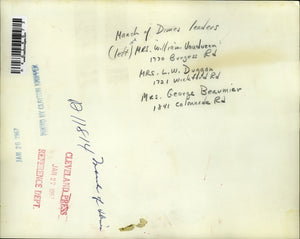 March of Dimes leaders
(left) MRS. William
1770 Burgess Rd
MRS. L.W. Duggan
1721 Wichfield Rd
Mrs. George Beaumier
1841 Colonnade Rd
R 11814
CLEVELAND PRESS
JAN 27
REFERENCE DEPT.
JAN 26